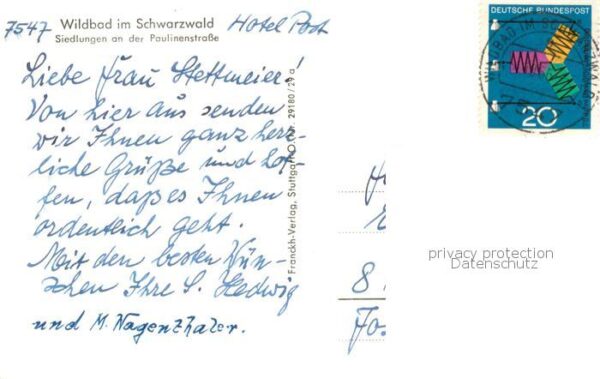 Wildbad im Schwarzwald
Siedlungen an der Paulinenstraße
7547 Hotel Post
Liebe Frau Stettmeier!
Von hier aus senden
wir Ihnen ganz herz-
liche Grüße und hof-
fen, daß es Ihnen
ordentlich geht.
Mit den besten Wün-
schen Ihre S. Hedwig
und M. Nagenzhaler.
Franckh-Verlag, Stuttgart-O Nr. 29180/29a
DEUTSCHE BUNDESPOST
20
WILDBAD IM SCHWARZWALD
8
privacy protection
Datenschutz